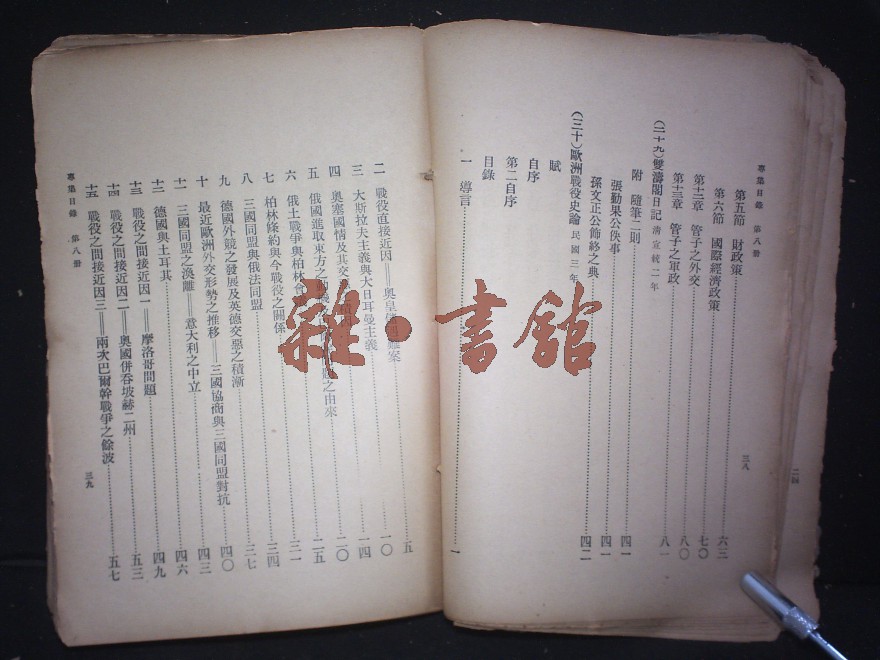 專集目錄 第八册
三八
第五節 財政策……六三
第六節 國際經濟政策……七〇
第十二章 管子之外交……八〇
第十三章 管子之軍政……八一
(二十九)雙濤閣日記 清宣統二年
附 隨筆二則……四一
張勤果公佚事……四一
孫文正公飾終之典……四二
(三十)歐洲戰役史論 民國三年
賦
自序
第二自序
目錄
一 導言……一
二四
二 戰役直接近因——奧皇案……五
三 大斯拉夫主義與大日耳曼主義……一〇
四 奧塞國情及其交……一四
五 俄國進取東方之之由來……二〇
六 俄土戰爭與柏林會……二五
七 柏林條約與今戰役之關係……三一
八 三國同盟與俄法同盟……三四
九 德國外競之發展及英德交惡之積漸……三七
十 最近歐洲外交形勢之推移——三國協商與三國同盟對抗……四〇
十一 三國同盟之渙離——意大利之中立……四三
十二 德國與土耳其……四六
十三 戰役之間接近因一——摩洛哥問題……四九
十四 戰役之間接近因二——奧國併吞坡赫二州……五三
十五 戰役之間接近因三——兩次巴爾幹戰爭之餘波……五七
專集目錄 第八册
三九
雜·書館